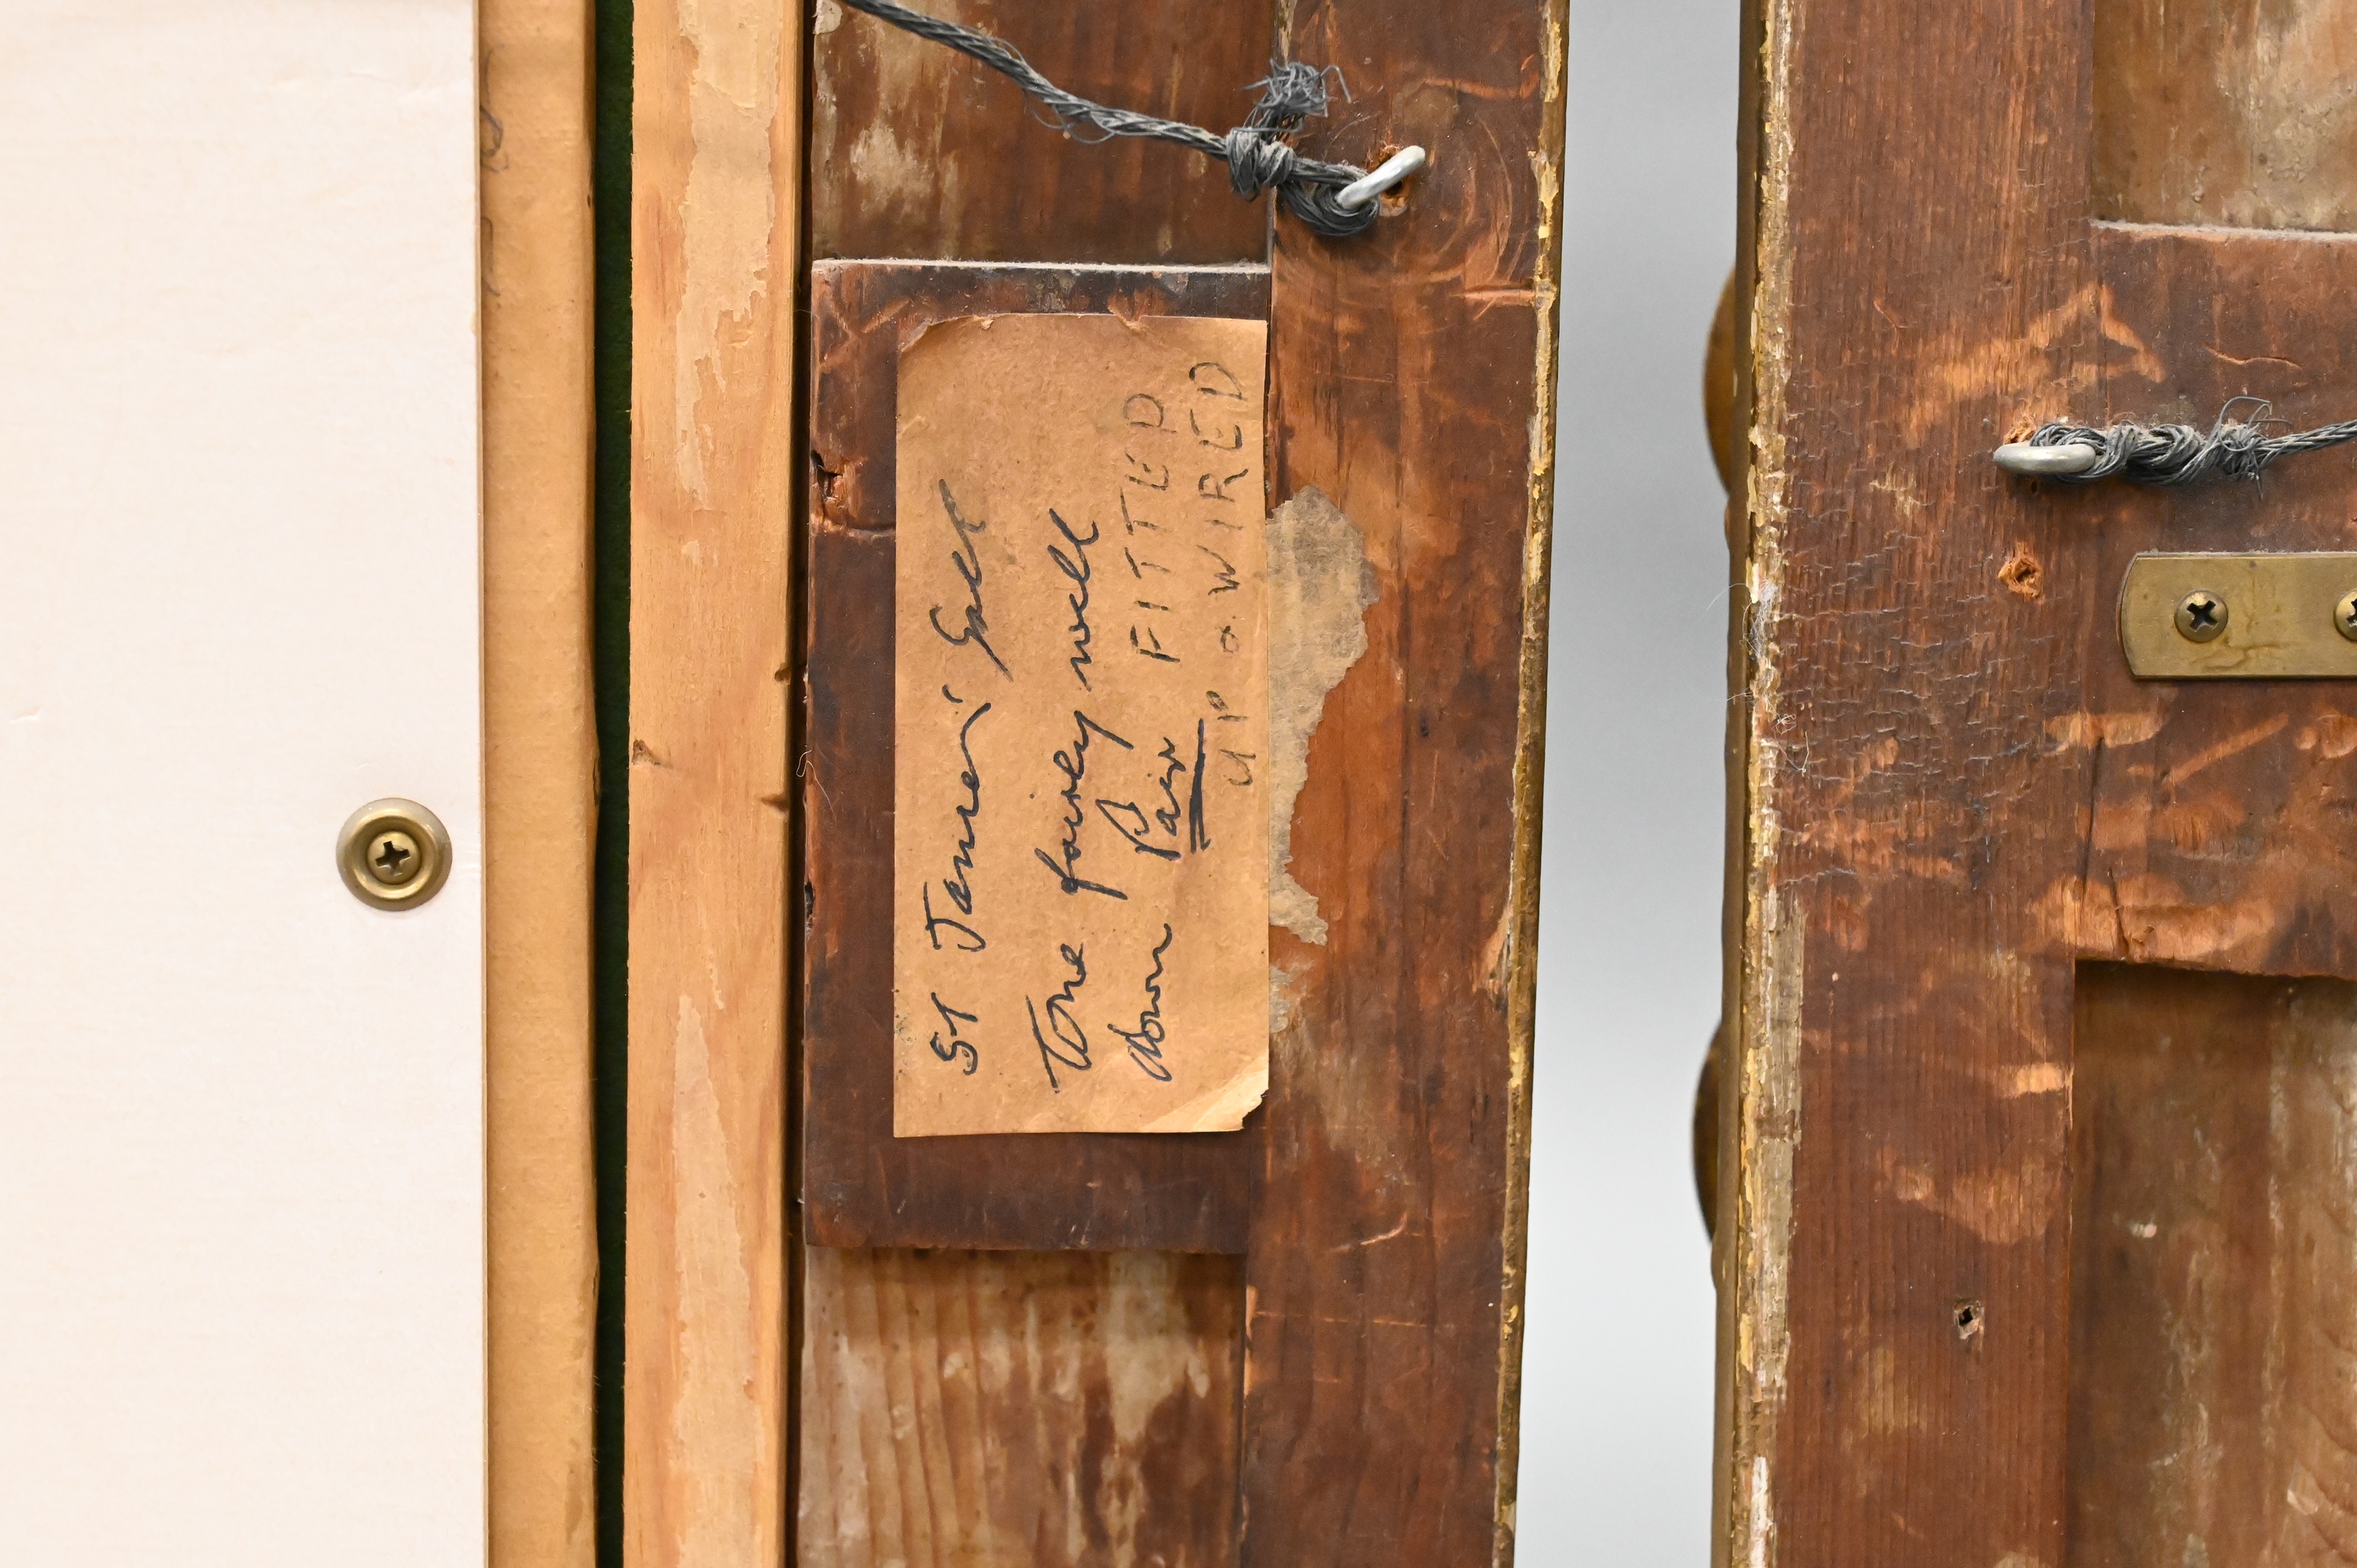 St James's Gall
Tone fairly well
down Pair FITTED
UP & WIRED